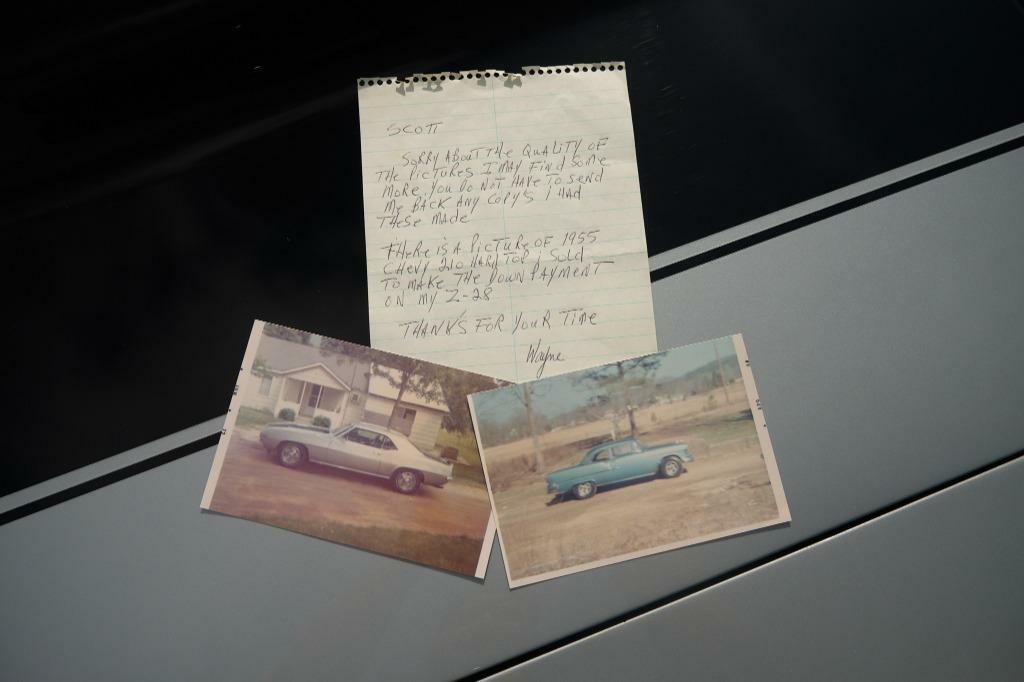 SCOTT
SORRY ABOUT THE QUALITY OF
THE PICTURES I MAY FIND SOME
MORE, YOU DO NOT HAVE TO SEND
ME BACK ANY COPY'S I HAD
THESE MADE
THERE IS A PICTURE OF 1955
CHEVY 210 HARD TOP I SOLD
TO MAKE THE DOWN PAYMENT
ON MY Z-28
THANK'S FOR YOUR TIME
Wayne